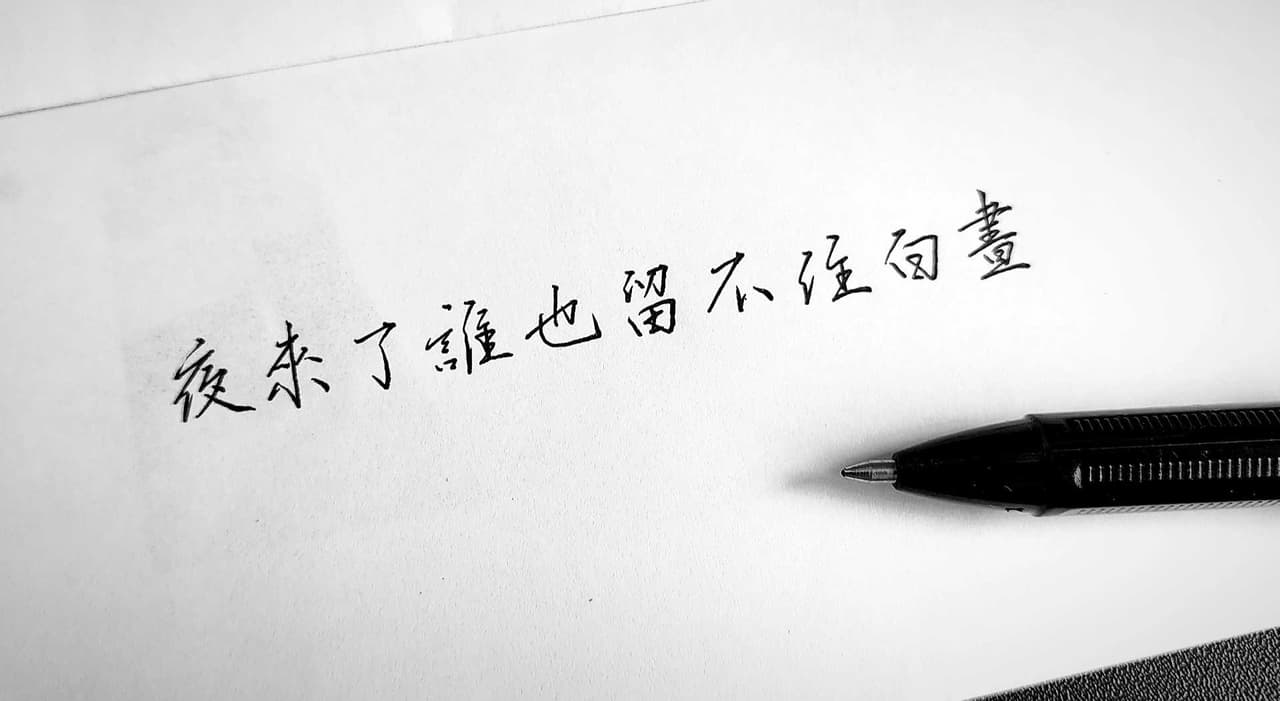 夜來了誰也留不住白晝